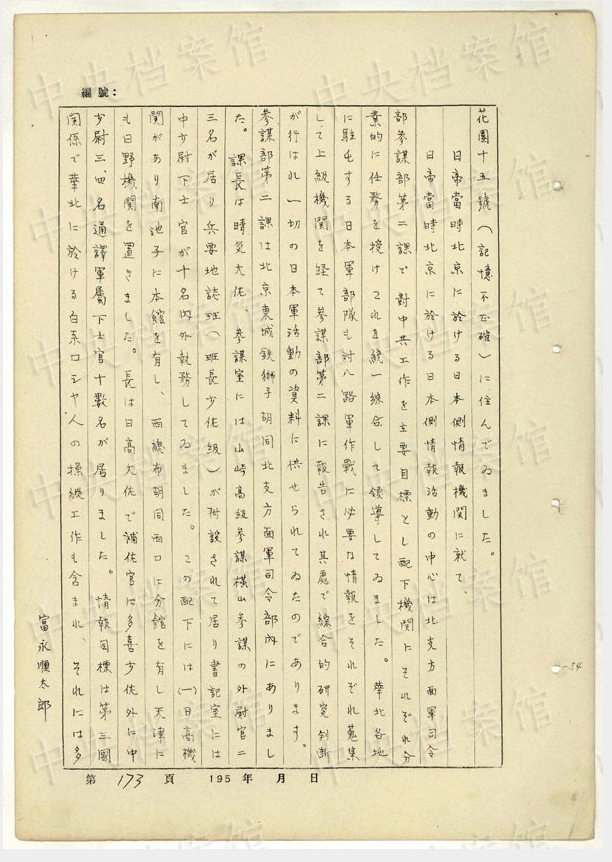 編號:
花園十五號(記憶不正確)に住んでゐました。
日帝當時北京に於ける日本側情報機関に就て、
日帝當時北京に於ける日本側情報活動の中心は北支方面軍司令
部参謀部第二課で対中共工作を主要目標とし配下機関にそれぞれ分
業的に任務を授けこれを統一綜合して領導してゐました。華北各地
に駐屯する日本軍部隊も対八路軍作戦に必要な情報をそれぞれ蒐集
して上級機関を経て参謀部第二課に報告され其處で綜合的研究判断
が行はれ一切の日本軍活動の資料に供せられてゐたのであります。
参謀部第二課は北京東城鉄獅子胡同北支方面軍司令部内にありまし
た。課長は晴気大佐、参謀室には山崎高級参謀横山参謀の外尉官二
三名が居り兵要地誌班(班長少佐級)が附設されて居り書記室には
中少尉下士官が十名内外執務してゐました。この配下には(一)日高機
関があり南池子に本館を有し、西總布胡同西口に分館を有し天津に
も日野機関を置きました。長は日高大佐で補佐官に多喜少佐外に中
少尉三、四名通譯軍属下士官十数名が居りました。情報目標は第三國
関係で華北に於ける白系ロシヤ人の操縦工作も含まれ、それには多
富永順太郎
第 173 頁 195 年 月 日
54
中央档案馆